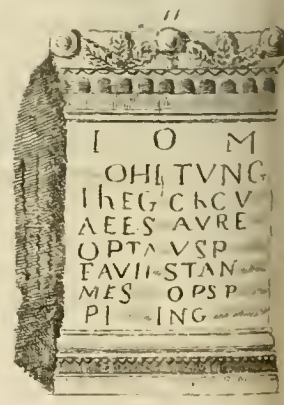 11
I O M
OHITVNG
IhEG ChCV
AEES AVRE
OPTA VSP
FAVII STAN
MES OPSP
PI ING